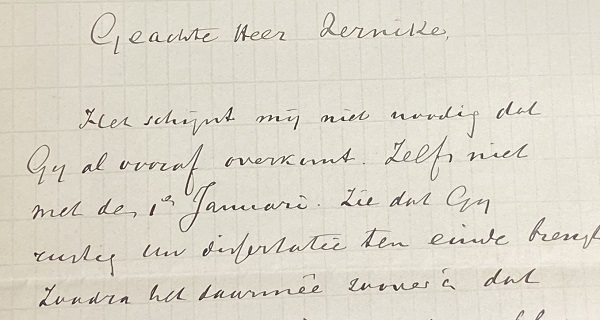 Geachte Heer Zernike,
Het schijnt mij niet noodig dat
Gy al vooraf overkomt. Zelfs niet
met den 1en Januari. Zie dat Gy
rustig uw dissertatie ten einde brengt
Zoodra het daarmêe zoover is dat